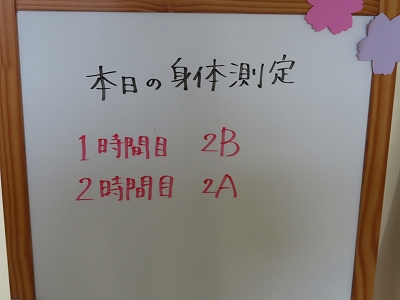 本日の身体測定
1時間目 2B
2時間目 2A